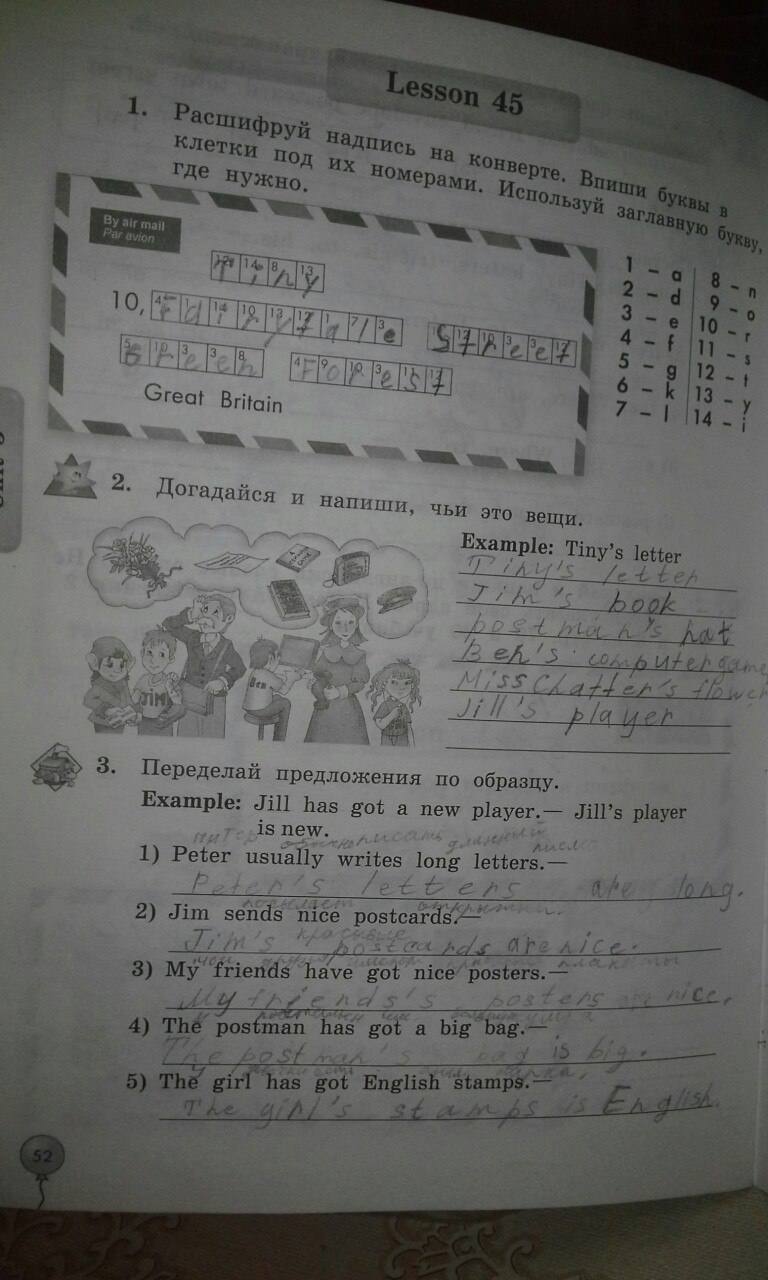 Lesson 45
1. Расшифруй надпись на конверте. Впиши буквы в
клетки под их номерами. Используй заглавную букву,
где нужно.
By air mail
Par avion
Tiny
10, Fairytale Street
Green Forest
Great Britain
1 – a 8 – n
2 – d 9 – o
3 – e 10 – r
4 – f 11 – s
5 – g 12 – t
6 – k 13 – y
7 – l 14 – i
2. Догадайся и напиши, чьи это вещи.
Example: Tiny's letter
Tiny's letter
Jim's book
postman's hat
Ben's computer game
Miss Chatter's flower
Jill's player
JIM
Ben
3. Переделай предложения по образцу.
Example: Jill has got a new player.— Jill's player
is new.
питер обычно писать длинный
1) Peter usually writes long letters.—
Peter's letters are long.
посылает открытки.
2) Jim sends nice postcards.—
красивые
Jim's postcards are nice.
3) My friends have got nice posters.—
плакаты
My friends's posters are nice.
4) The postman has got a big bag.—
The postman's bag is big.
5) The girl has got English stamps.—
The girl's stamps is English.
52